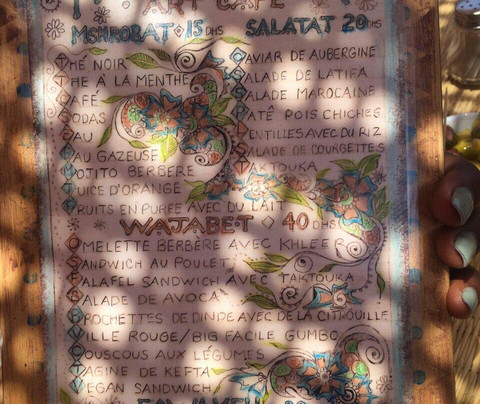 ART CAFE
MSHROBAT · 15 DHS
THÉ NOIR
THÉ À LA MENTHE
CAFÉ
SODAS
EAU
EAU GAZEUSE
MOJITO BERBERE
JUICE D'ORANGE
FRUITS EN PUREE AVEC DU LAIT
SALATAT 20 DHS
CAVIAR DE AUBERGINE
SALADE DE LATIFA
SALADE MAROCAINE
PATÉ POIS CHICHES
LENTILLES AVEC DU RIZ
SALADE DE COURGETTES
TAKTOUKA
WAJABET ◇ 40 DHS
OMELETTE BERBÈRE AVEC KHLEER
SANDWICH AU POULET
FALAFEL SANDWICH AVEC TAKTOUKA
SALADE DE AVOCA
BROCHETTES DE DINDE AVEC DE LA CITROUILLE
VILLE ROUGE/BIG FACILE GUMBO
COUSCOUS AUX LÉGUMES
TAGINE DE KEFTA
VEGAN SANDWICH